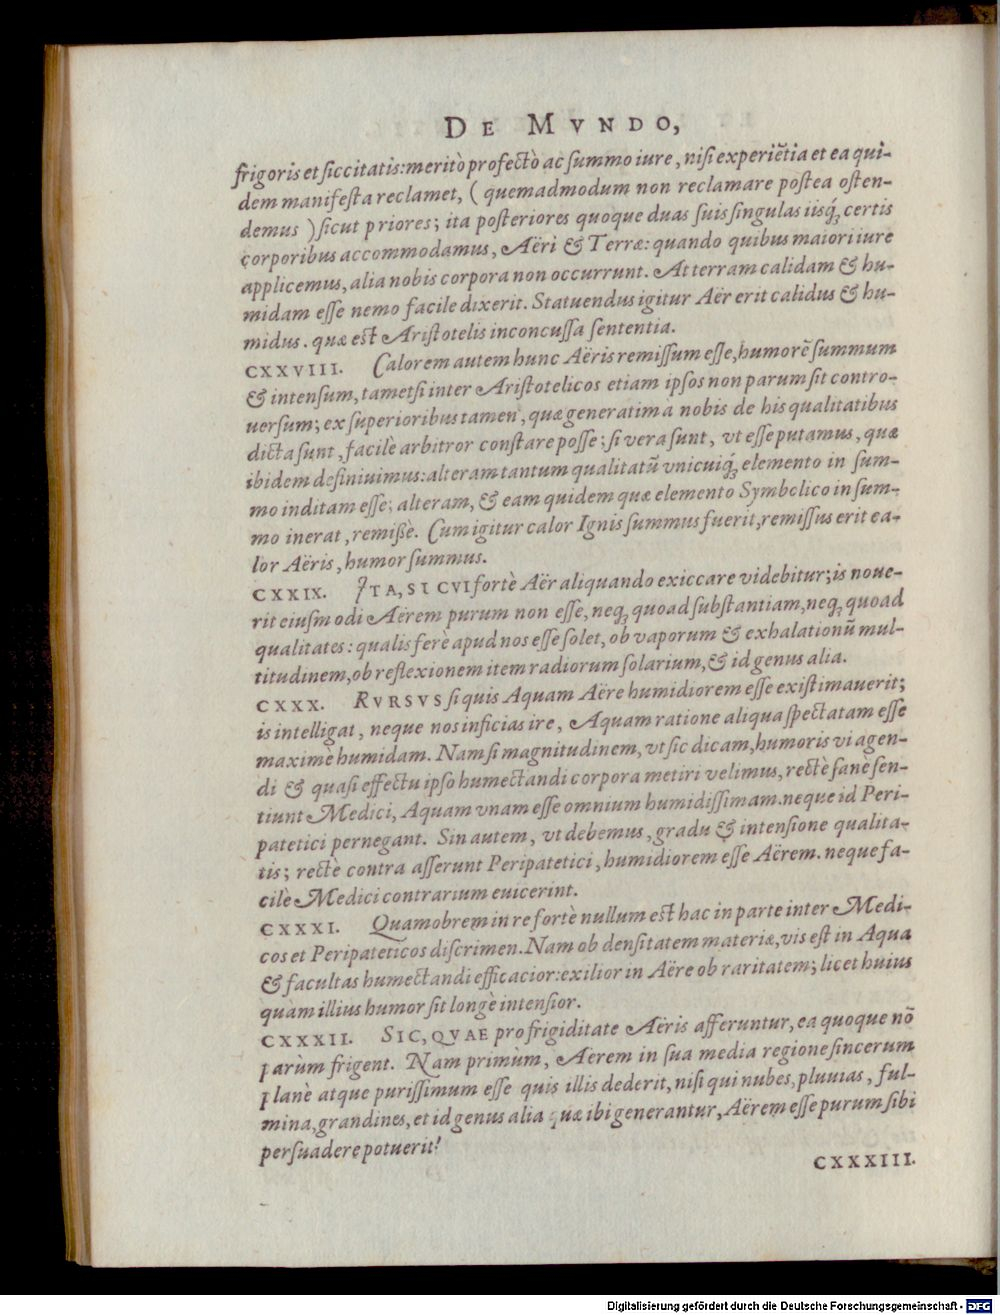 DE MVNDO,
frigoris et siccitatis: meritò profectò ac summo iure, nisi experiẽtia et ea qui-
dem manifesta reclamet, (quemadmodum non reclamare postea osten-
demus) sicut priores; ita posteriores quoque duas suis singulas iisq́ꝫ certis
corporibus accommodamus, Aëri & Terræ: quando quibus maiori iure
applicemus, alia nobis corpora non occurrunt. At terram calidam & hu-
midam esse nemo facile dixerit. Statuendus igitur Aër erit calidus & hu-
midus. quæ est Aristotelis inconcussa sententia.
CXXVIII. Calorem autem hunc Aëris remissum esse, humorẽ summum
& intensum, tametsi inter Aristotelicos etiam ipsos non parum sit contro-
uersum; ex superioribus tamen, quæ generatim a nobis de his qualitatibus
dicta sunt, facilè arbitror constare posse; si vera sunt, vt esse putamus, quæ
ibidem definiuimus: alteram tantum qualitatũ vnicuiq́ꝫ elemento in sum-
mo inditam esse; alteram, & eam quidem quæ elemento Symbolico in sum-
mo inerat, remißè. Cum igitur calor Ignis summus fuerit, remissus erit ca-
lor Aëris, humor summus.
CXXIX. ITA, SI CVI fortè Aër aliquando exiccare videbitur; is noue-
rit eiusmodi Aërem purum non esse, neqꝫ quoad substantiam, neqꝫ quoad
qualitates: qualis ferè apud nos esse solet, ob vaporum & exhalationũ mul-
titudinem, ob reflexionem item radiorum solarium, & id genus alia.
CXXX. RVRSVS si quis Aquam Aëre humidiorem esse existimauerit;
is intelligat, neque nos inficias ire, Aquam ratione aliqua spectatam esse
maximè humidam. Nam si magnitudinem, vt sic dicam, humoris vi agen-
di & quasi effectu ipso humectandi corpora metiri velimus, rectè sanè sen-
tiunt Medici, Aquam vnam esse omnium humidissimam. neque id Peri-
patetici pernegant. Sin autem, vt debemus, gradu & intensione qualita-
tis; rectè contra asserunt Peripatetici, humidiorem esse Aërem. neque fa-
cilè Medici contrarium euicerint.
CXXXI. Quamobrem in re fortè nullum est hac in parte inter Medi-
cos et Peripateticos discrimen. Nam ob densitatem materiæ, vis est in Aqua
& facultas humectandi efficacior: exilior in Aëre ob raritatem; licet huius
quàm illius humor sit longè intensior.
CXXXII. SIC, QVAE pro frigiditate Aëris afferuntur, ea quoque nõ
parùm frigent. Nam primùm, Aërem in sua media regione sincerum
planè atque purissimum esse quis illis dederit, nisi qui nubes, pluuias, ful-
mina, grandines, et id genus alia quæ ibi generantur, Aërem esse purum sibi
persuadere potuerit?
CXXXIII.
Digitalisierung gefördert durch die Deutsche Forschungsgemeinschaft - DFG